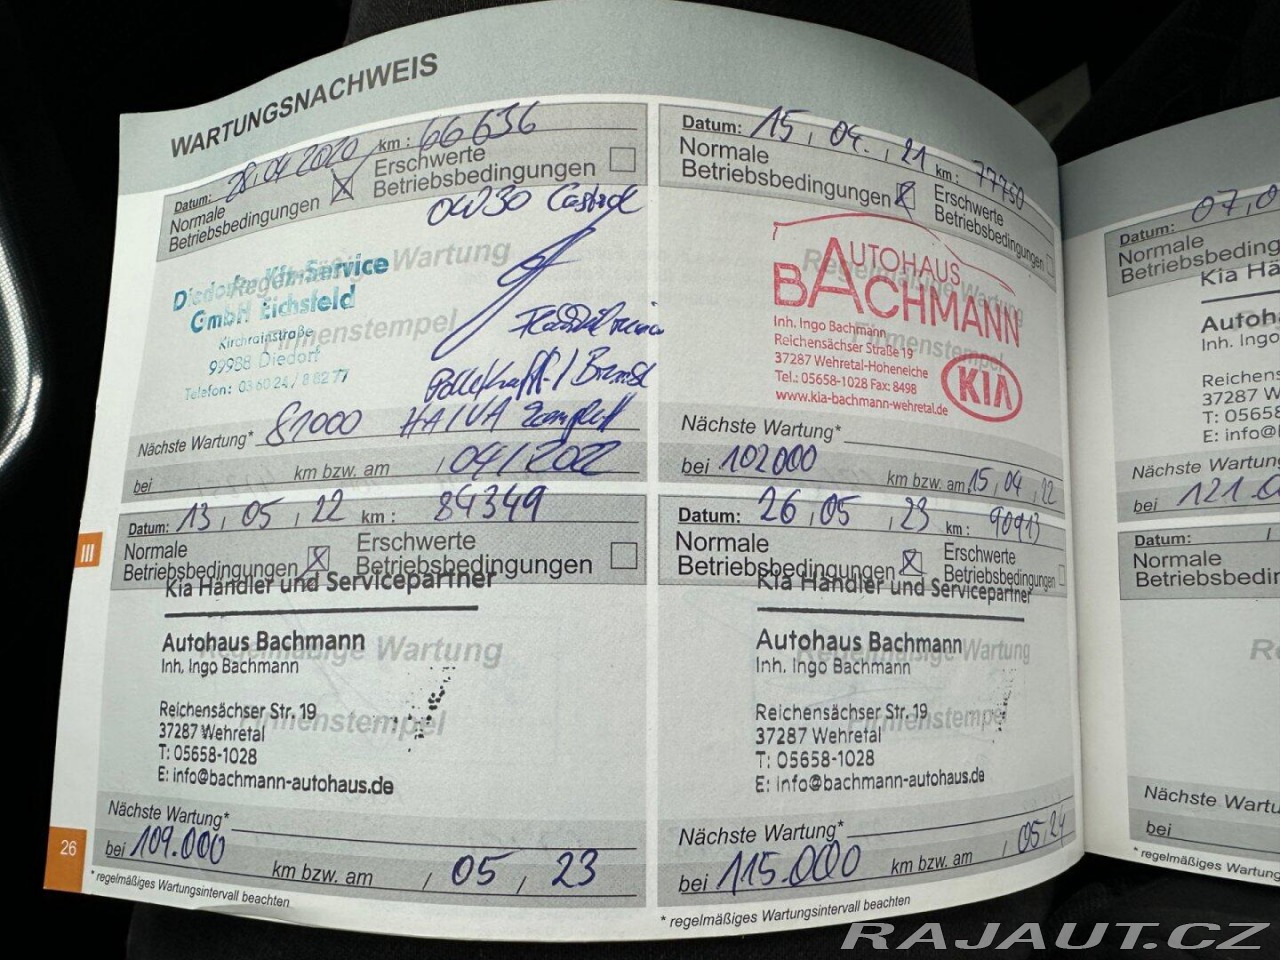 WARTUNGSNACHWEIS
Datum: 28.04.2020 km: 66636
Normale Betriebsbedingungen
Erschwerte Betriebsbedingungen
0W30 Castrol
Regelmäßige Wartung
Firmenstempel
Diedorfer Kfz-Service
GmbH Eichsfeld
Kirchrainstraße
99988 Diedorf
Telefon: 036024/88277
HA/VA
Nächste Wartung* 81000
bei km bzw. am 04/2022
Datum: 15.04.21 km: 77750
Normale
Betriebsbedingungen
Erschwerte
Betriebsbedingungen
Regelmäßige Wartung
Firmenstempel
AUTOHAUS
BACHMANN
Inh. Ingo Bachmann
Reichensächser Straße 19
37287 Wehretal-Hoheneiche
Tel.: 05658-1028 Fax: 8498
www.kia-bachmann-wehretal.de
KIA
Nächste Wartung*
bei 102000 km bzw. am 15.04.22
Datum: 13.05.22 km: 84349
Normale
Betriebsbedingungen
Erschwerte
Betriebsbedingungen
Kia Händler und Servicepartner
Regelmäßige Wartung
Firmenstempel
Autohaus Bachmann
Inh. Ingo Bachmann
Reichensächser Str. 19
37287 Wehretal
T: 05658-1028
E: info@bachmann-autohaus.de
Nächste Wartung*
bei 109.000 km bzw. am 05,23
* regelmäßiges Wartungsintervall beachten
Datum: 26.05.23 km: 90913
Normale
Betriebsbedingungen
Erschwerte
Betriebsbedingungen
Kia Händler und Servicepartner
Regelmäßige Wartung
Firmenstempel
Autohaus Bachmann
Inh. Ingo Bachmann
Reichensächser Str. 19
37287 Wehretal
T: 05658-1028
E: info@bachmann-autohaus.de
Nächste Wartung*
bei 115.000 km bzw. am 05,24
* regelmäßiges Wartungsintervall beachten
III
26
Datum: 07.0
Normale
Betriebsbedingun
Kia Hän
Autoha
Inh. Ingo
Reichens
37287
T: 05658
E: info@
Nächste Wartung
bei 121.0
Datum:
Normale
Betriebsbedin
Re
Nächste Wartu
bei
* regelmäßiges Wartungs
RAJAUT.CZ